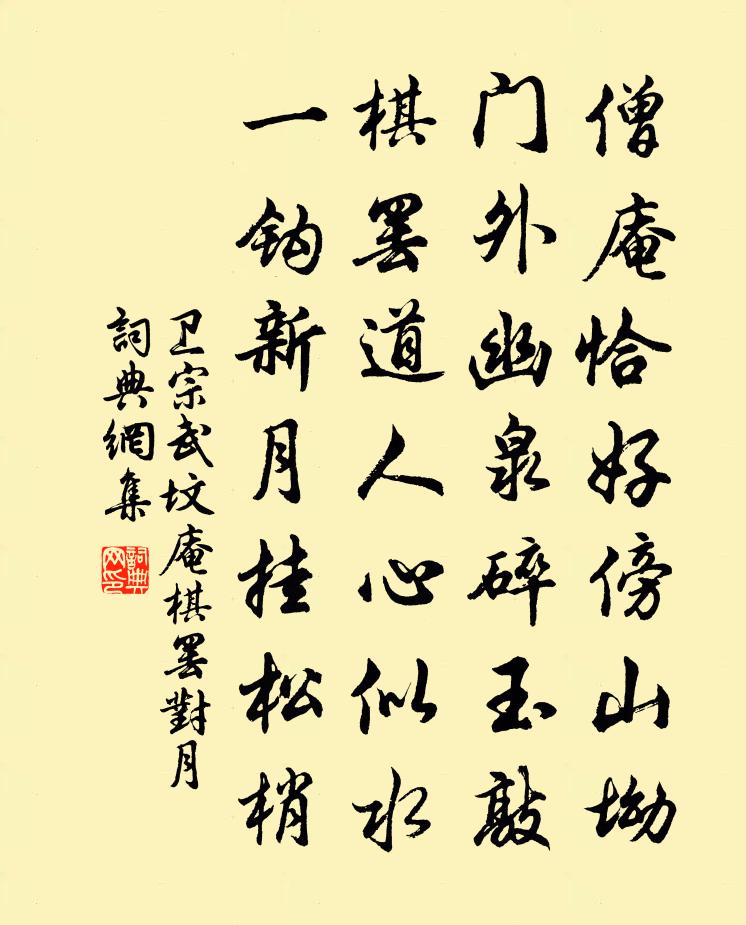 僧庵恰好傍山坳
门外幽泉碎玉敲
棋罢道人心似水
一钩新月挂松梢
卫宗武坟庵棋罢對月
詞典網集
詞典网印